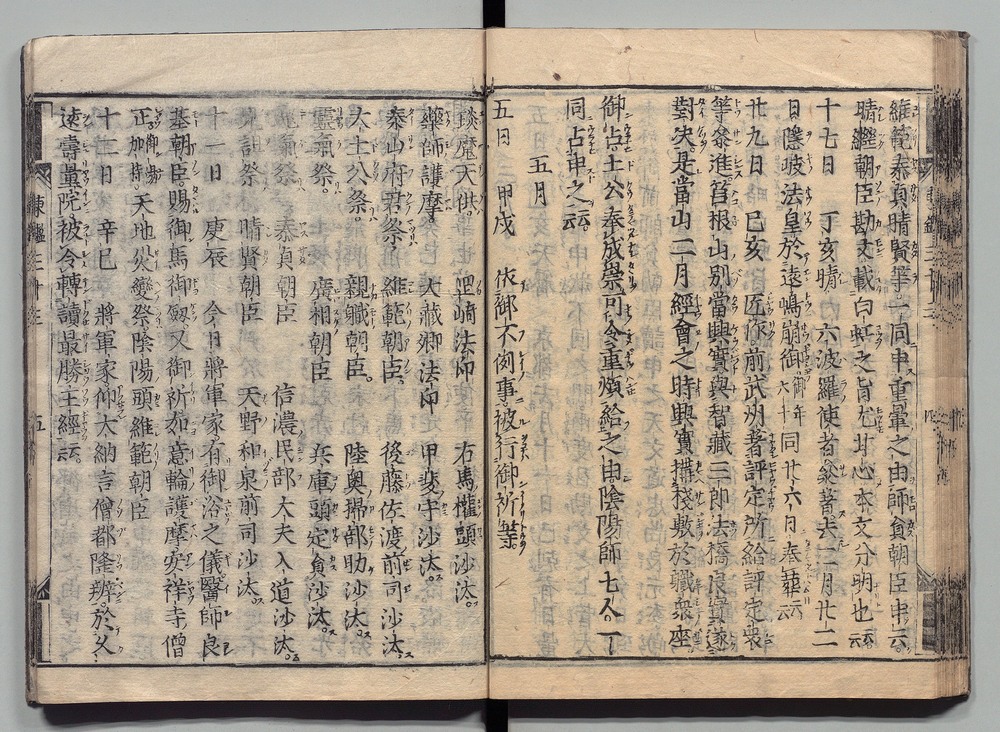 維範泰貞晴賢等一同申重暈之由師貟朝臣申云云
晴繼朝臣勘文載白虹之旨尤甘心本文分明也云云
十七日 丁亥晴 六波羅使者參著去二月廿二
日隱岐法皇於遠嶋崩御御年六十同廿六日奉葬云云
廿九日 己亥 匠作前武州著評定所給評定衆
等參進筥根山別當興實與智藏三郎法橋良實遂
對决是當山二月經會之時興實構棧敷於職衆座
御占土公奉成祟可令重煩給之由陰陽師七人一丁
同占申之云云
五月
五日 甲戌 依御不例事被行御祈等
琰魔天供 法印 右馬權頭沙汰
藥師護摩 大藏卿法印 甲斐守沙汰
泰山府君祭 維範朝臣 後藤佐渡前司沙汰
大土公祭 親職朝臣 陸奥掃部助沙汰
靈氣祭 廣相朝臣 兵庫頭定貟沙汰
鬼氣祭 泰貞朝臣 信濃民部大夫入道沙汰
咒詛祭 晴賢朝臣 天野和泉前司沙汰
十一日 庚辰 今日將軍家有御浴之儀醫師良
基朝臣賜御馬御劔又御祈如意輪護摩安祥寺僧
正御加持天地災變祭陰陽頭維範朝臣
十二日 辛巳 將軍家仰大納言僧都隆辨於久
遠壽量院被令轉讀最勝王經云云
東鑑三十三 五